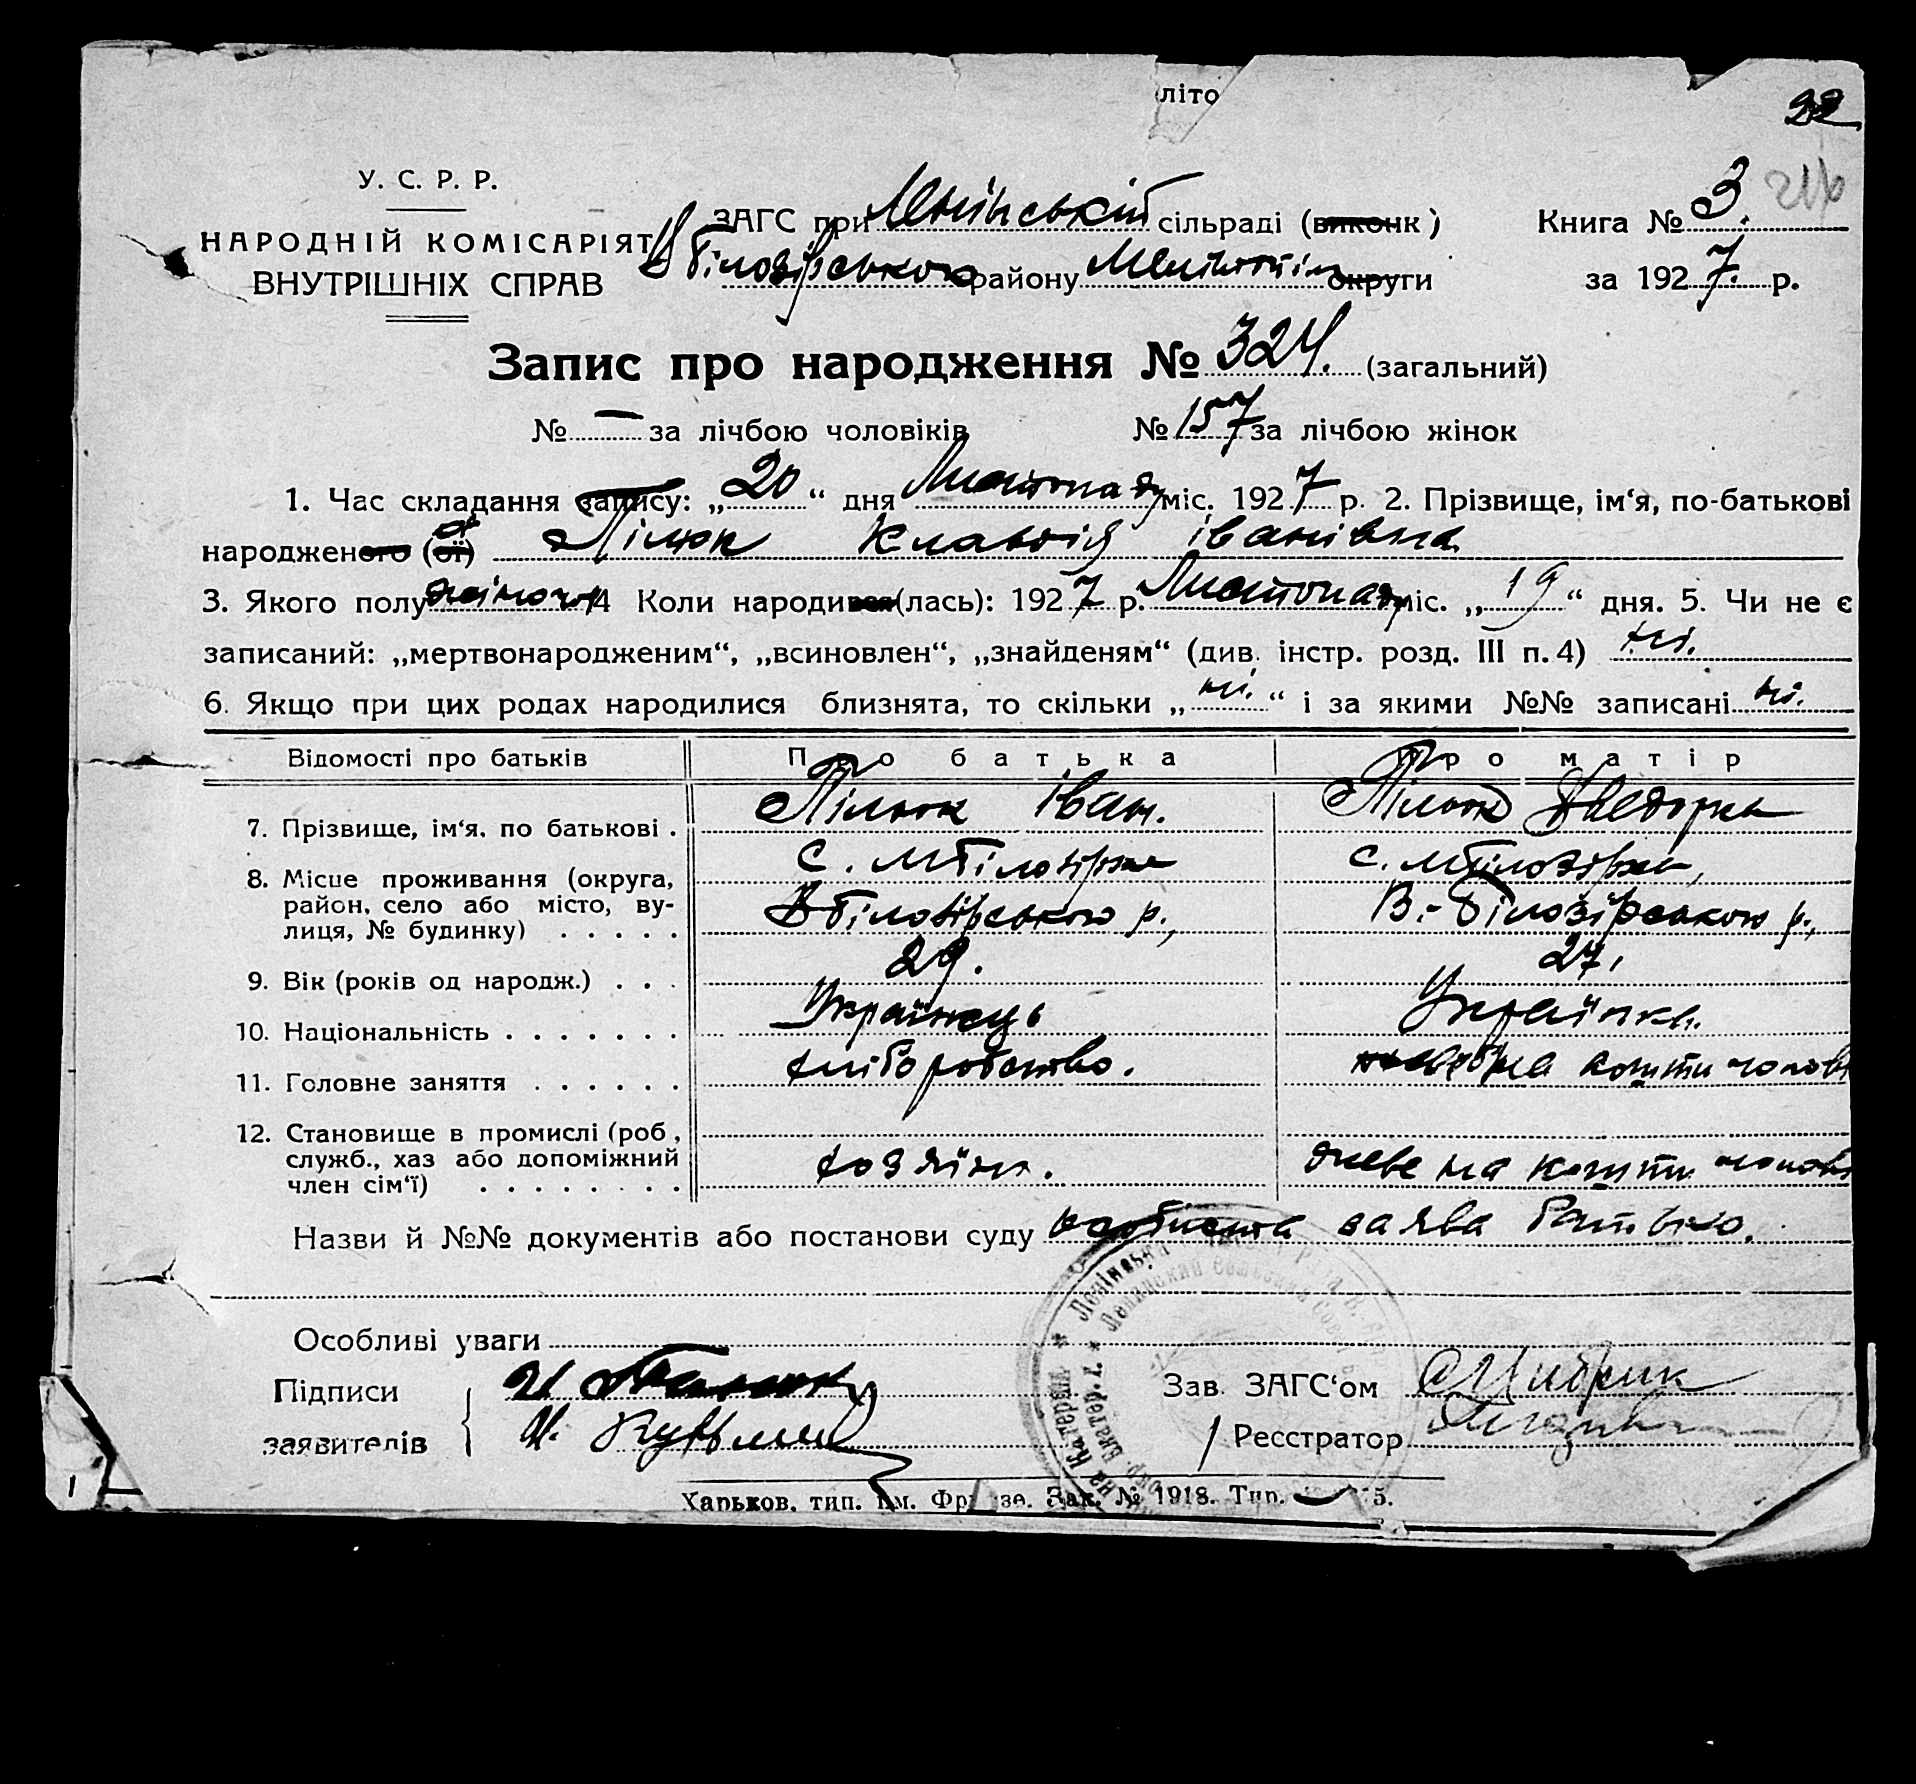 літо
22
У. С. Р. Р.
НАРОДНІЙ КОМІСАРІЯТ
ВНУТРІШНІХ СПРАВ
ЗАГС при Ленінській сільраді (виконк)
В Білозірського району Мелітопіл округи
Книга № 3.
за 1927 р.
Запис про народження № 324. (загальний)
№ — за лічбою чоловіків № 157 за лічбою жінок
1. Час складання запису: „20“ дня Листопаду міс. 1927 р. 2. Прізвище, ім‘я, по-батькові
народженого (ої) Пілюк Клавдія Іванівна
3. Якого полу жіночу 4 Коли народився (лась): 1927 р. Листопаду міс. „19“ дня. 5. Чи не є
записаний: „мертвонародженим“, „всиновлен“, „знайденям“ (див. інстр. розд. III п. 4) ні.
6. Якщо при цих родах народилися близнята, то скільки „ні.“ і за якими №№ записані ні.
Відомості про батьків Про батька Про матір
7. Прізвище, ім‘я. по батькові . Пілюк Іван. Пілюк Хведорка
8. Місце проживання (округа, район, село або місто, вулиця, № будинку) . . . . . с. МБілозірка В Білозірського р., с. МБілозірка, В.-Білозірського р.,
9. Вік (років од народж.) . . . 29. 27.
10. Національність . . . . . . . Українець Українка.
11. Головне заняття . . . . . . хліборобство. на кошти чолов
12. Становище в промислі (роб, служб., хаз або допоміжний член сім‘ї) . . . . . . . . хозяїн. живе на кошти чолов
Назви й №№ документів або постанови суду особиста заява батька.
Особливі уваги
Підписи
заявителів
Зав. ЗАГС‘ом
Реєстратор
Харьков, тип. им. Фрунзе. Зак. № 1918. Тир.